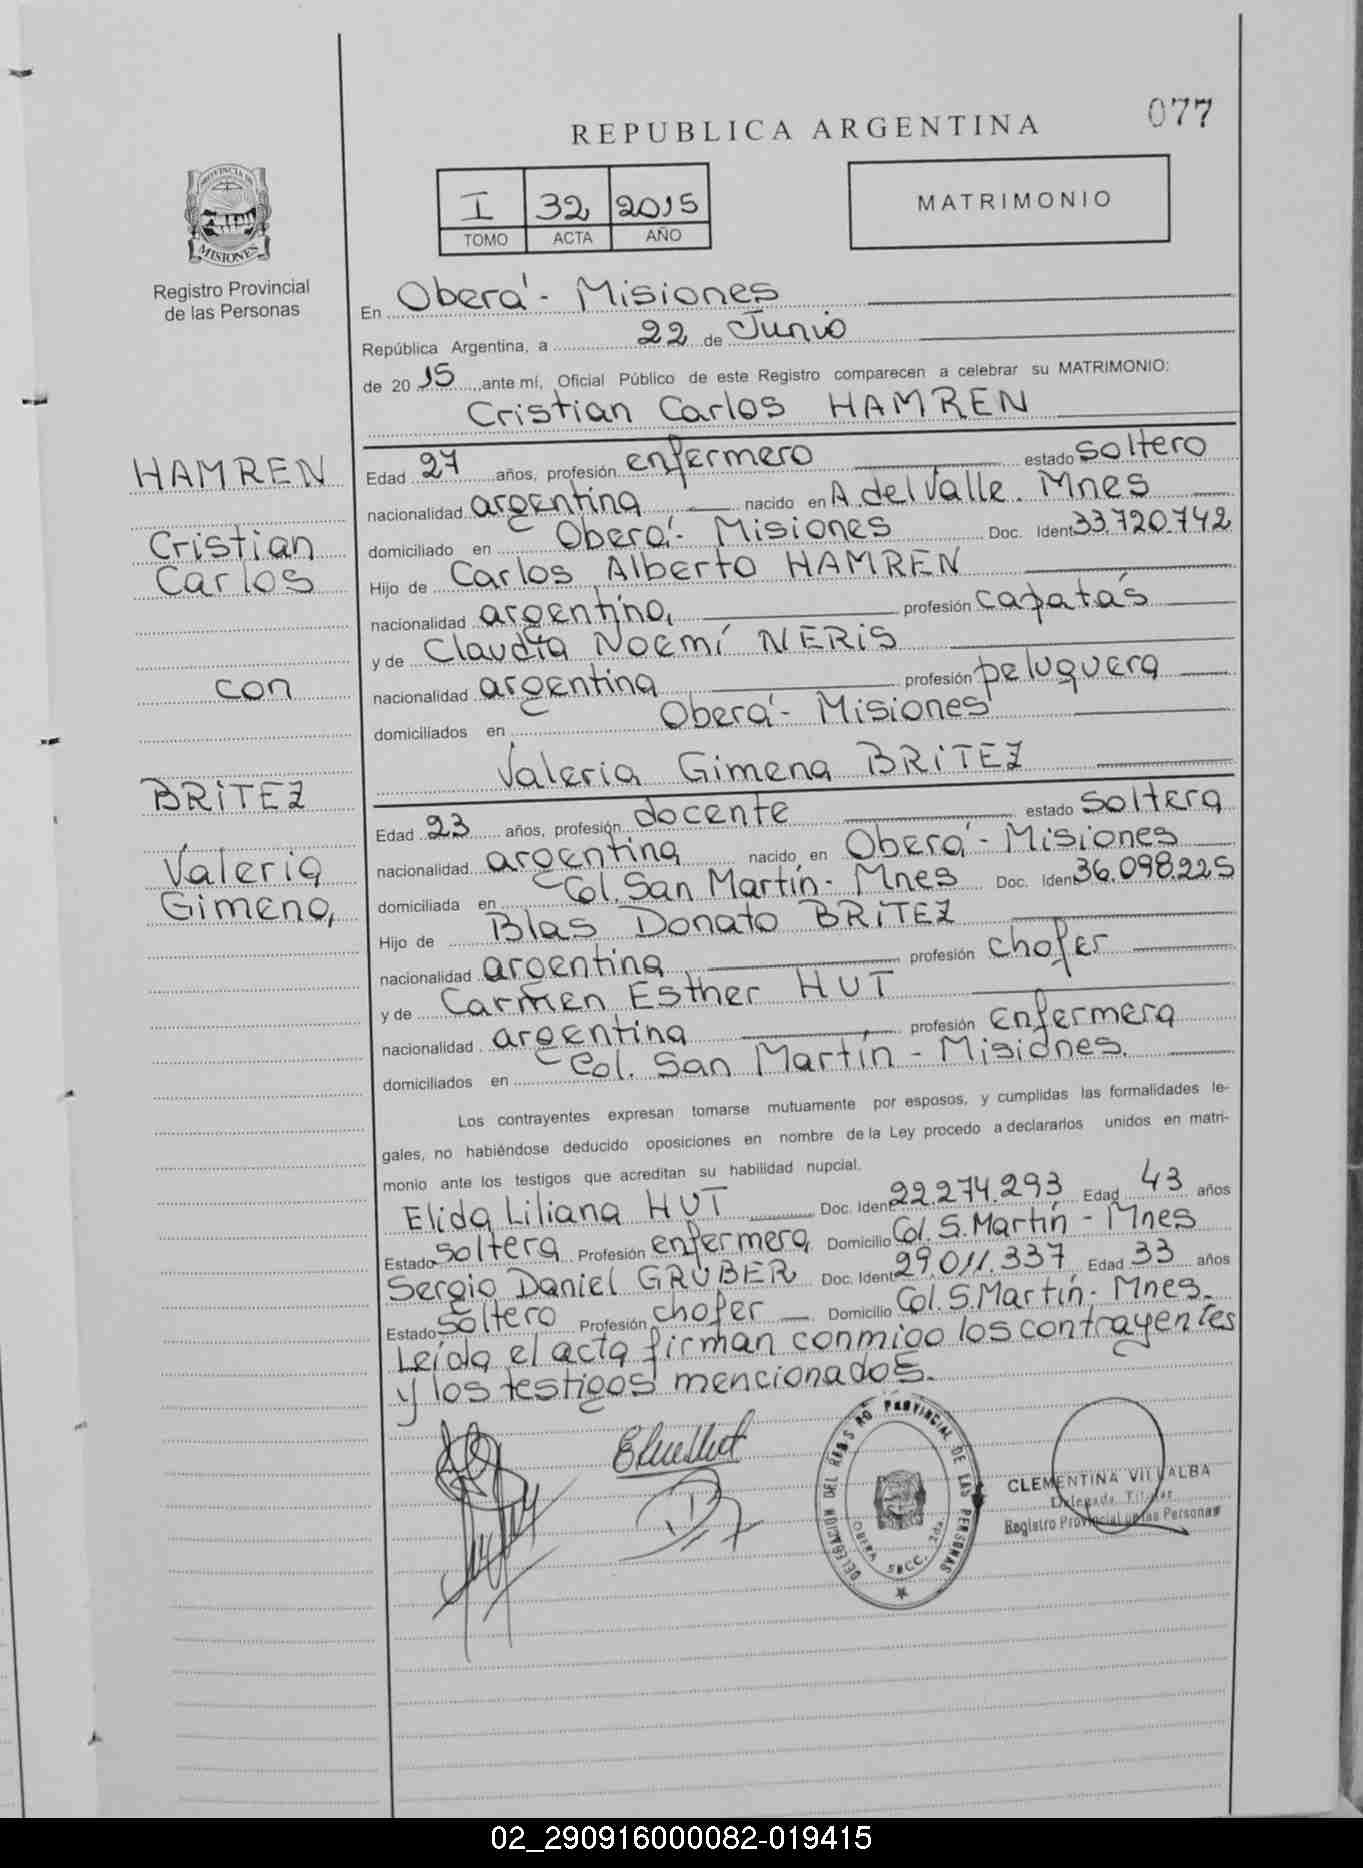 077
REPUBLICA ARGENTINA
I 32 2015
TOMO ACTA AÑO
MATRIMONIO
PROVINCIA DE
MISIONES
Registro Provincial
de las Personas
En Oberá - Misiones
República Argentina, a 22 de Junio
de 20 15, ante mí, Oficial Público de este Registro comparecen a celebrar su MATRIMONIO:
Cristian Carlos HAMREN
Edad 27 años, profesión enfermero estado soltero
nacionalidad argentina nacido en A. del Valle. Mnes
domiciliado en Oberá - Misiones Doc. Ident 33.720.742
Hijo de Carlos Alberto HAMREN
nacionalidad argentina profesión capatás
y de Claudia Noemí NERIS
nacionalidad argentina profesión peluquera
domiciliados en Oberá - Misiones
Valeria Gimena BRITEZ
Edad 23 años, profesión docente estado soltera
nacionalidad argentina nacido en Oberá - Misiones
domiciliada en Col. San Martín - Mnes Doc. Ident 36.098.225
Hijo de Blas Donato BRITEZ
nacionalidad argentina profesión chofer
y de Carmen Esther HUT
nacionalidad argentina profesión enfermera
domiciliados en Col. San Martín - Misiones.
HAMREN
Cristian
Carlos
con
BRITEZ
Valeria
Gimena
Los contrayentes expresan tomarse mutuamente por esposos, y cumplidas las formalidades le-
gales, no habiéndose deducido oposiciones en nombre de la Ley procedo a declararlos unidos en matri-
monio ante los testigos que acreditan su habilidad nupcial.
Elida Liliana HUT Doc. Ident 22.274.293 Edad 43 años
Estado soltera Profesión enfermera Domicilio Col. S. Martín - Mnes
Sergio Daniel GRUBER Doc. Ident 29.011.337 Edad 33 años
Estado soltero Profesión chofer Domicilio Col. S. Martín - Mnes.
Leída el acta firman conmigo los contrayentes
y los testigos mencionados.
DELEGACION DEL REGISTRO PROVINCIAL DE LAS PERSONAS
OBERA SECC. 2da.
CLEMENTINA VILLALBA
Delegada Titular
Registro Provincial de las Personas
02_290916000082-019415